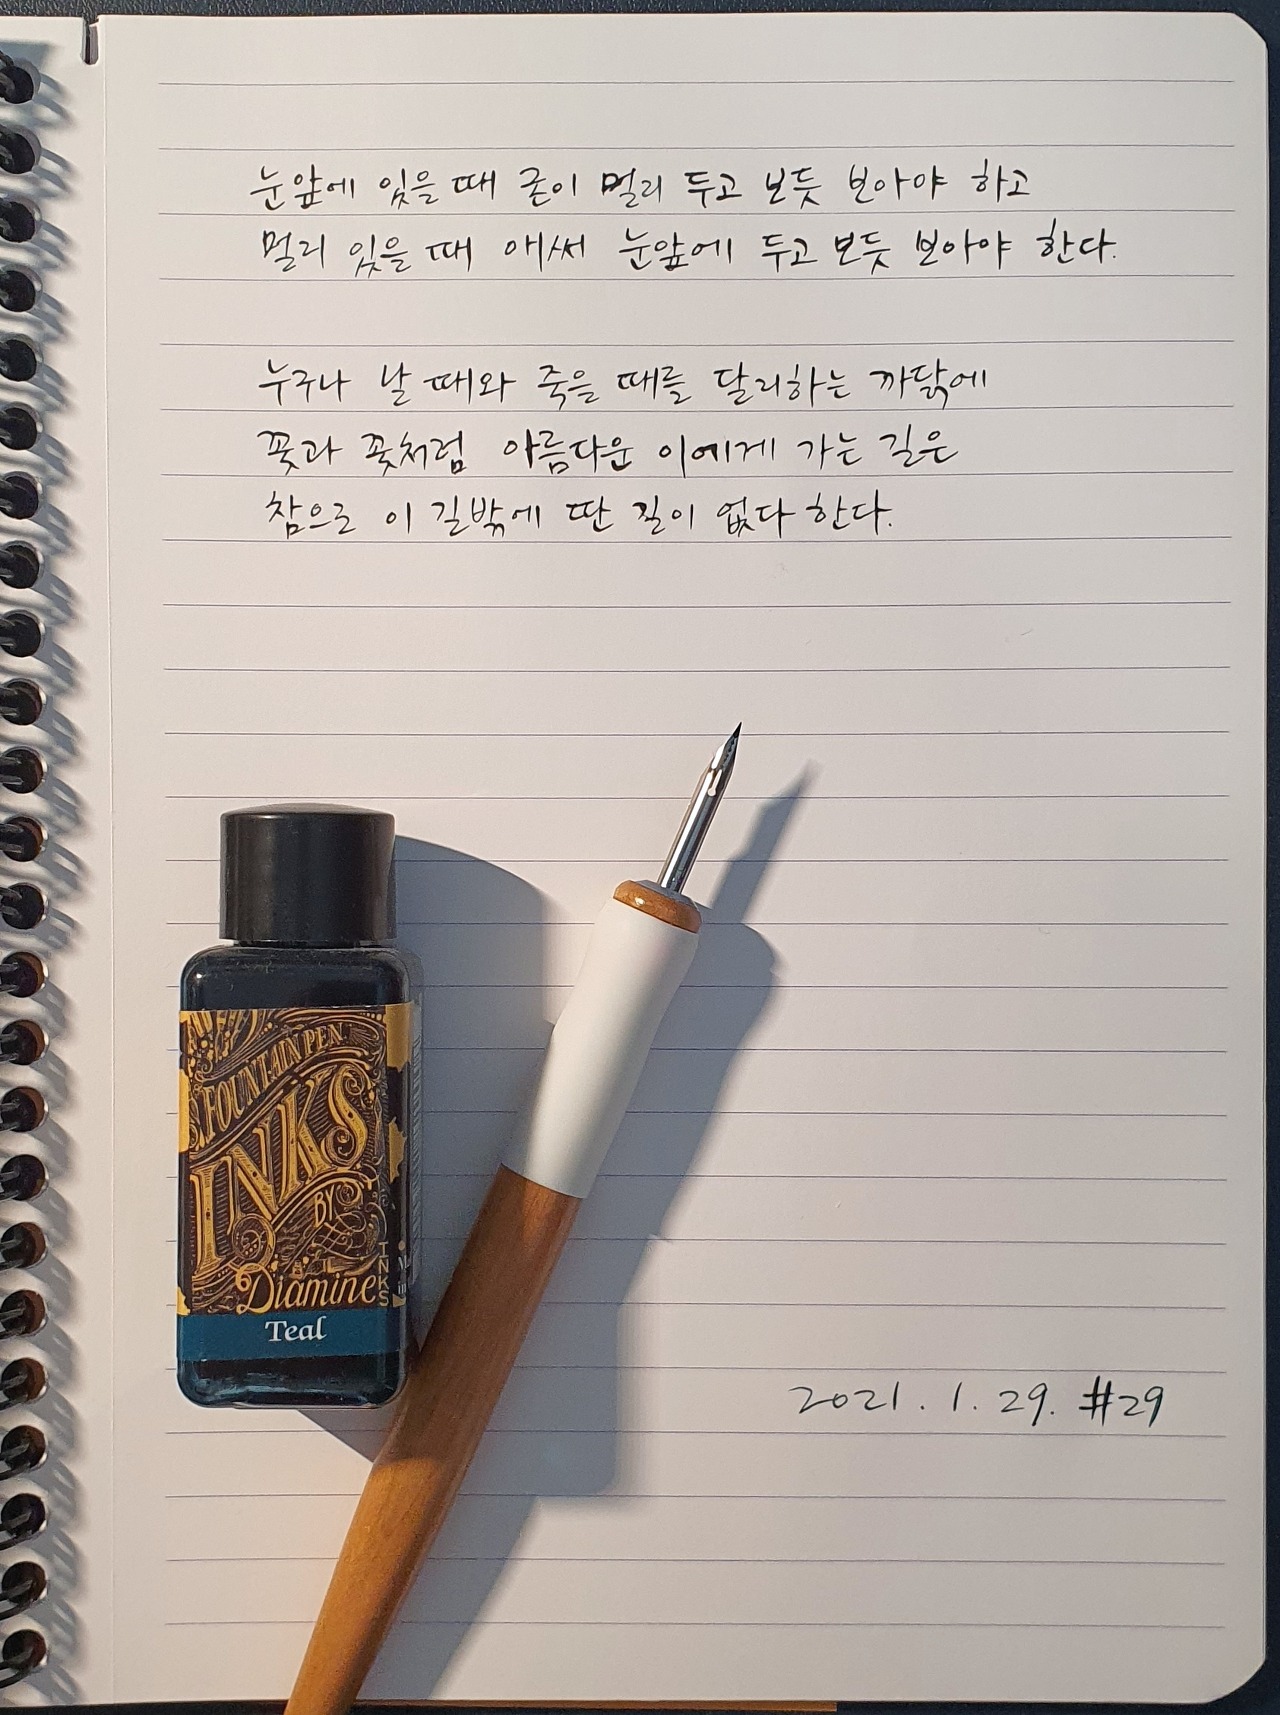 눈앞에 있을 때 굳이 멀리 두고 보듯 보아야 하고
멀리 있을 때 애써 눈앞에 두고 보듯 보아야 한다.
누구나 날 때와 죽을 때를 달리하는 까닭에
꽃과 꽃처럼 아름다운 이에게 가는 길은
참으로 이 길밖에 딴 길이 없다 한다.
FOUNTAIN PEN
INKS
BY
Diamine
INKS
Teal
2021. 1. 29. #29